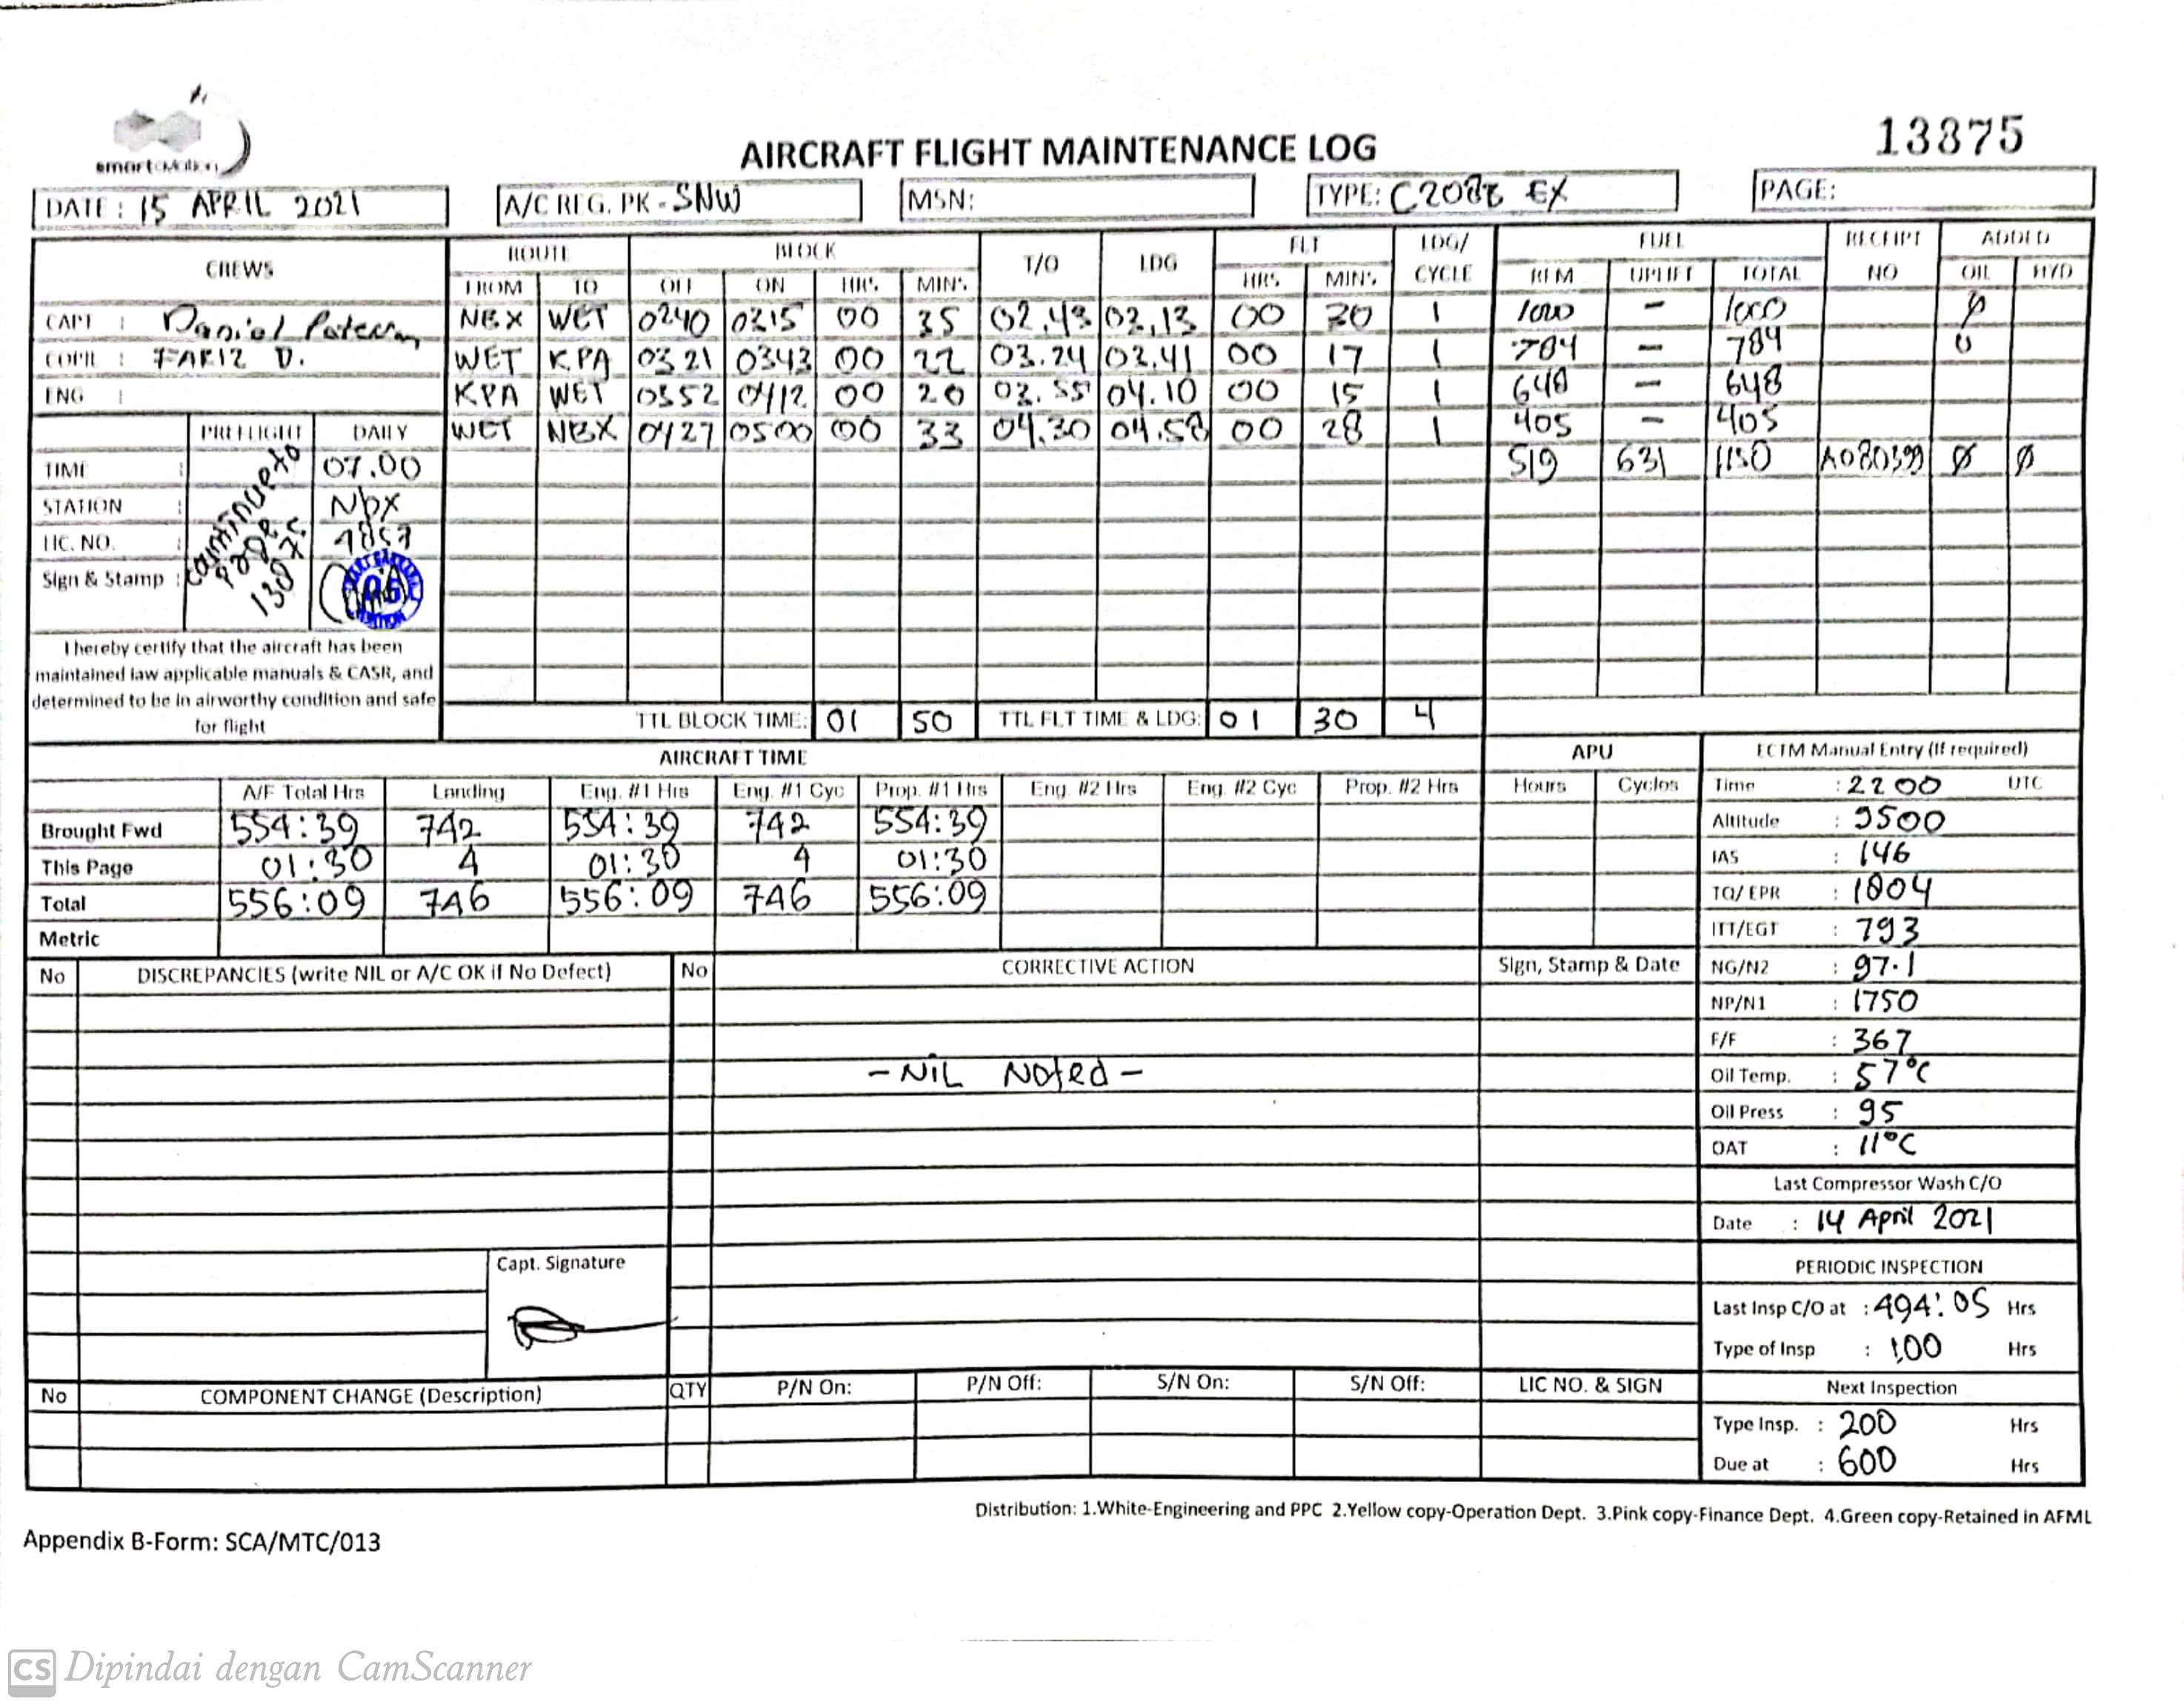 smart aviation
AIRCRAFT FLIGHT MAINTENANCE LOG
13875
DATE : 15 APRIL 2021 A/C REG. PK - SNW MSN: TYPE: C208B EX PAGE:
CREWS ROUTE BLOCK T/O LDG FLT LDG/ CYCLE FUEL RECEIPT NO ADDED
FROM TO OFF ON HRS MINS HRS MINS REM UPLIFT TOTAL OIL HYD
CAPT : Daniel NBX WET 0240 0315 00 35 02.43 03.13 00 30 1 1000 - 1000 Ø
COPIL : FARIZ D. WET KPA 0321 0343 00 22 03.24 03.41 00 17 1 784 - 784 0
ENG : KPA WET 0352 0412 00 20 03.55 04.10 00 15 1 648 - 648
WET NBX 0427 0500 00 33 04.30 04.58 00 28 1 405 - 405
519 631 1150 A080399 Ø Ø
PREFLIGHT DAILY
TIME : 07.00
STATION : Nbx
LIC. NO. : 7857
Sign & Stamp :
continue to
page
13875
I hereby certify that the aircraft has been
maintained law applicable manuals & CASR, and
determined to be in airworthy condition and safe
for flight
TTL BLOCK TIME: 01 50 TTL FLT TIME & LDG: 01 30 4
AIRCRAFT TIME APU ECTM Manual Entry (If required)
A/F Total Hrs Landing Eng. #1 Hrs Eng. #1 Cyc Prop. #1 Hrs Eng. #2 Hrs Eng. #2 Cyc Prop. #2 Hrs Hours Cycles
Brought Fwd 554:39 742 554:39 742 554:39
This Page 01:30 4 01:30 4 01:30
Total 556:09 746 556:09 746 556:09
Metric
Time : 2200 UTC
Altitude : 9500
IAS : 146
TQ/ EPR : 1804
ITT/EGT : 793
NG/N2 : 97.1
NP/N1 : 1750
F/F : 367
Oil Temp. : 57°C
Oil Press : 95
OAT : 11°C
Last Compressor Wash C/O
Date : 14 April 2021
PERIODIC INSPECTION
Last Insp C/O at : 494:05 Hrs
Type of Insp : 100 Hrs
Next Inspection
Type Insp. : 200 Hrs
Due at : 600 Hrs
No DISCREPANCIES (write NIL or A/C OK if No Defect) No CORRECTIVE ACTION Sign, Stamp & Date
- NiL Noted -
Capt. Signature
No COMPONENT CHANGE (Description) QTY P/N On: P/N Off: S/N On: S/N Off: LIC NO. & SIGN
Distribution: 1.White-Engineering and PPC 2.Yellow copy-Operation Dept. 3.Pink copy-Finance Dept. 4.Green copy-Retained in AFML
Appendix B-Form: SCA/MTC/013
CS Dipindai dengan CamScanner